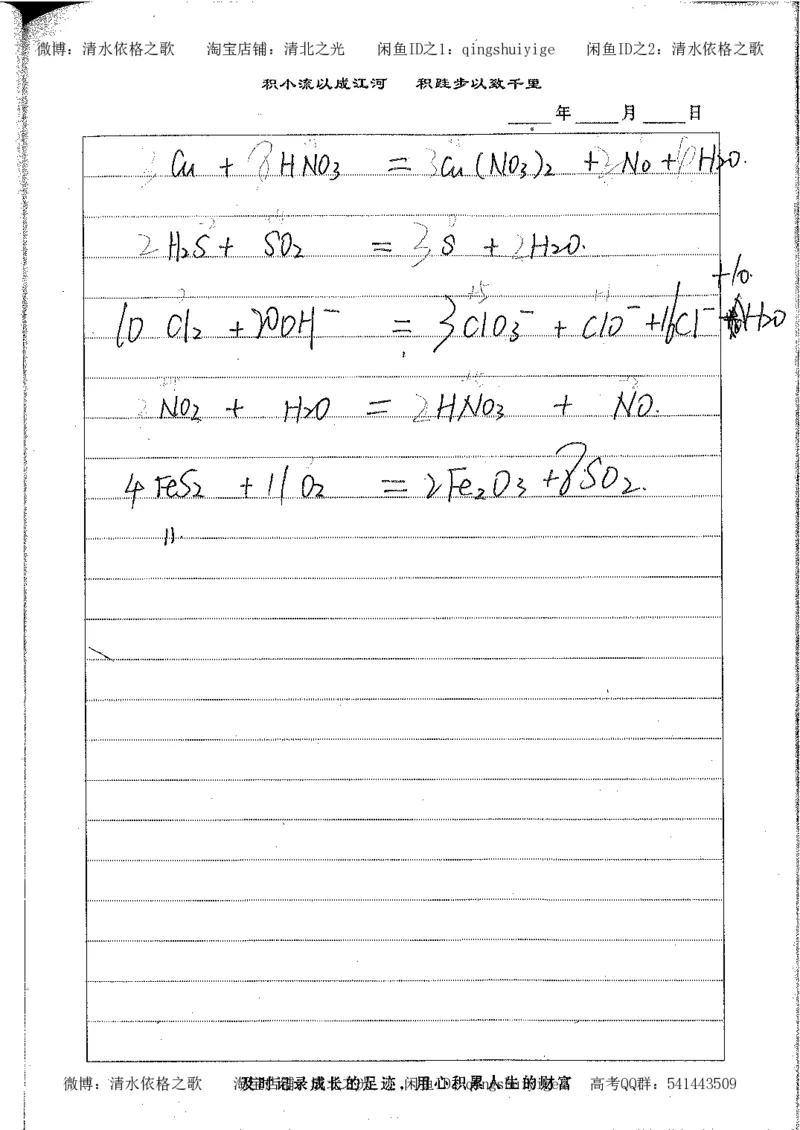 微博：清水依格之歌 淘宝店铺：清北之光 闲鱼ID之1：qingshuiyige 闲鱼ID之2：清水依格之歌
积小流以成江河 积跬步以致千里
年 月 日
3Cu + 8HNO3 = 3Cu(NO3)2 + 2No + H2O.
-2 +4 0
2H2S + SO2 = 3S + 2H2O.
+5 +1 +10.
10Cl2 + 20OH⁻ = 3ClO3⁻ + ClO⁻ + 16Cl⁻ H2O
2NO2 + H2O = 2HNO3 + NO.
4FeS2 + 11O2 = 2Fe2O3 + 8SO2.
11.
微博：清水依格之歌 及时记录成长的足迹，用心积累人生的财富 高考QQ群：541443509